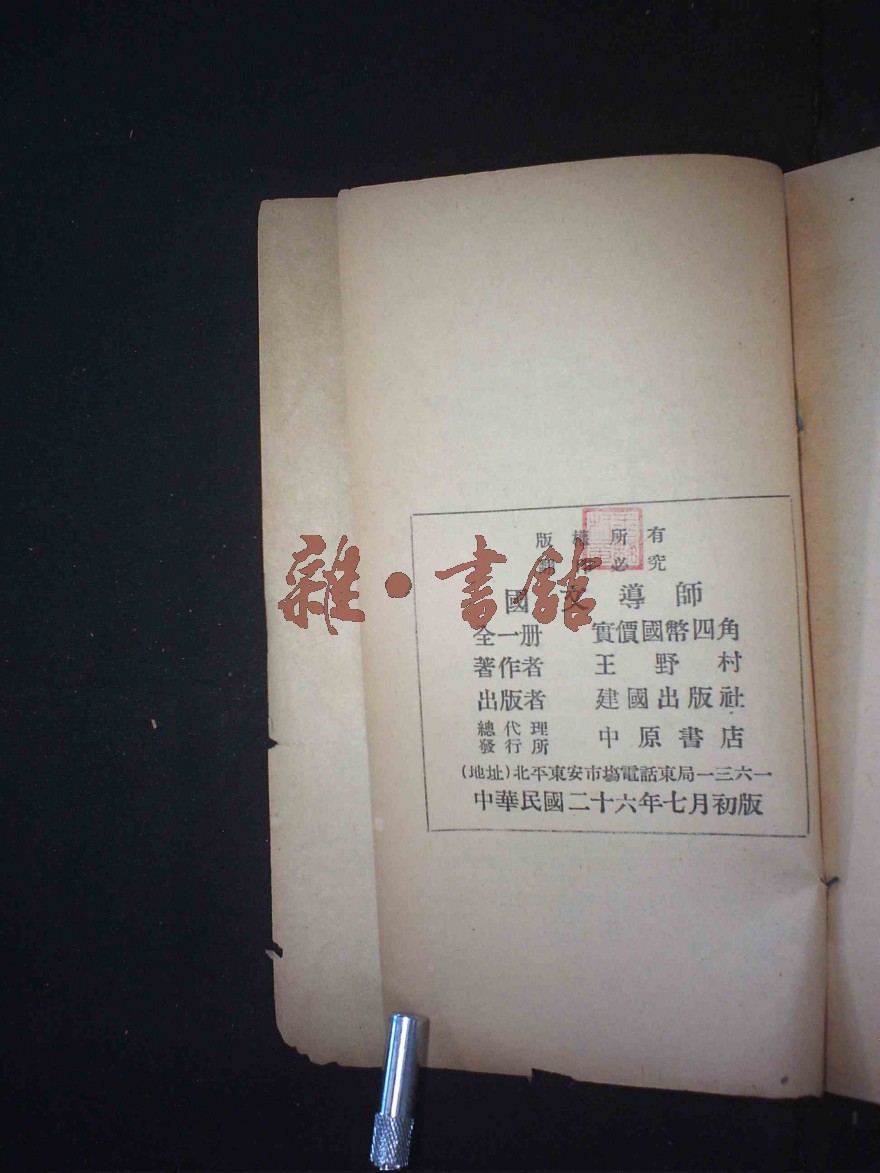 版權所有
必究
國文導師
全一册 實價國幣四角
著作者 王野村
出版者 建國出版社
總代理
發行所 中原書店
(地址)北平東安市塲電話東局一三六一
中華民國二十六年七月初版
雜·書館